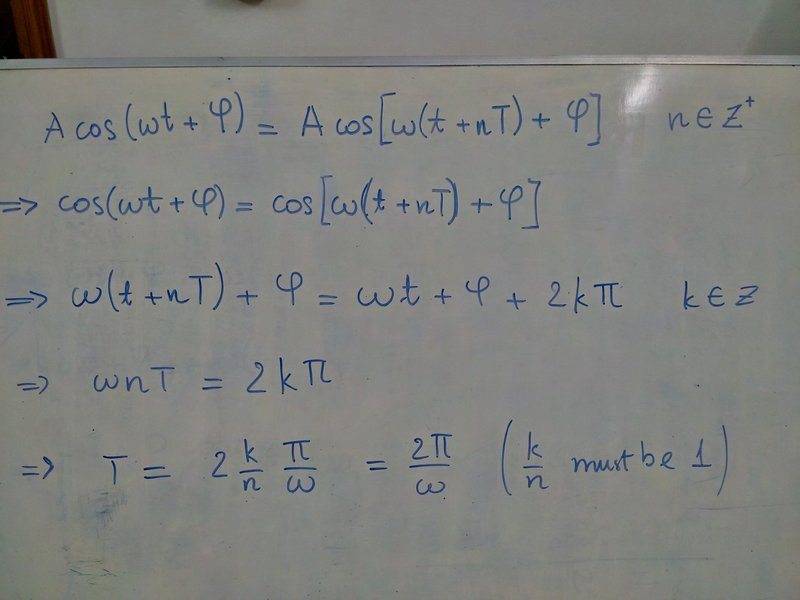 A cos(ωt + φ) = A cos[ω(t + nT) + φ] n ∈ Z⁺
⇒ cos(ωt + φ) = cos[ω(t + nT) + φ]
⇒ ω(t + nT) + φ = ωt + φ + 2kπ k ∈ Z
⇒ ωnT = 2kπ
⇒ T = 2 k/n π/ω = 2π/ω (k/n must be 1)